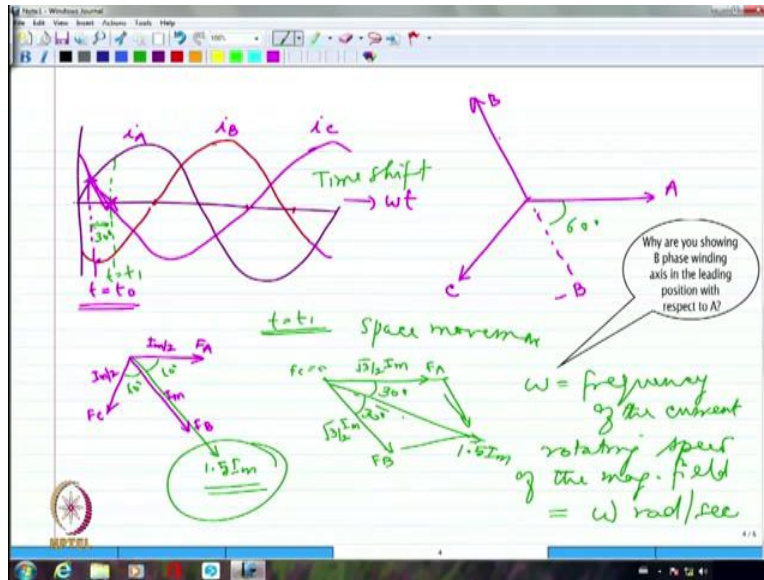 Note1 - Windows Journal
File Edit View Insert Actions Tools Help
100%
B I
iA iB iC
Time shift
→ wt
30°
t = t1
t = t0
B
A
60°
C
- B
Why are you showing
B phase winding
axis in the leading
position with
respect to A?
t = t1 space movemen
Im/2 FA
Im/2 60° 60° Im
FC
FB
1.5 Im
FC = 0 √3/2 Im FA
30°
30°
√3/2 Im
FB
1.5 Im
ω = frequency
of the current
rotating speed
of the mag. field
= ω rad/sec
NPTEL
4 / 5
4